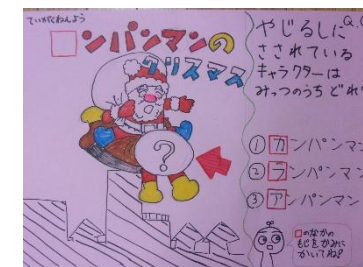 ていがくねんよう
□ンパンマンの
クリスマス
?
Q.
やじるしに
さされている
キャラクターは
みっつのうち どれ
① カンパンマン
② ランパンマン
③ アンパンマン
□のなかの
もじをかみに
かいてね!